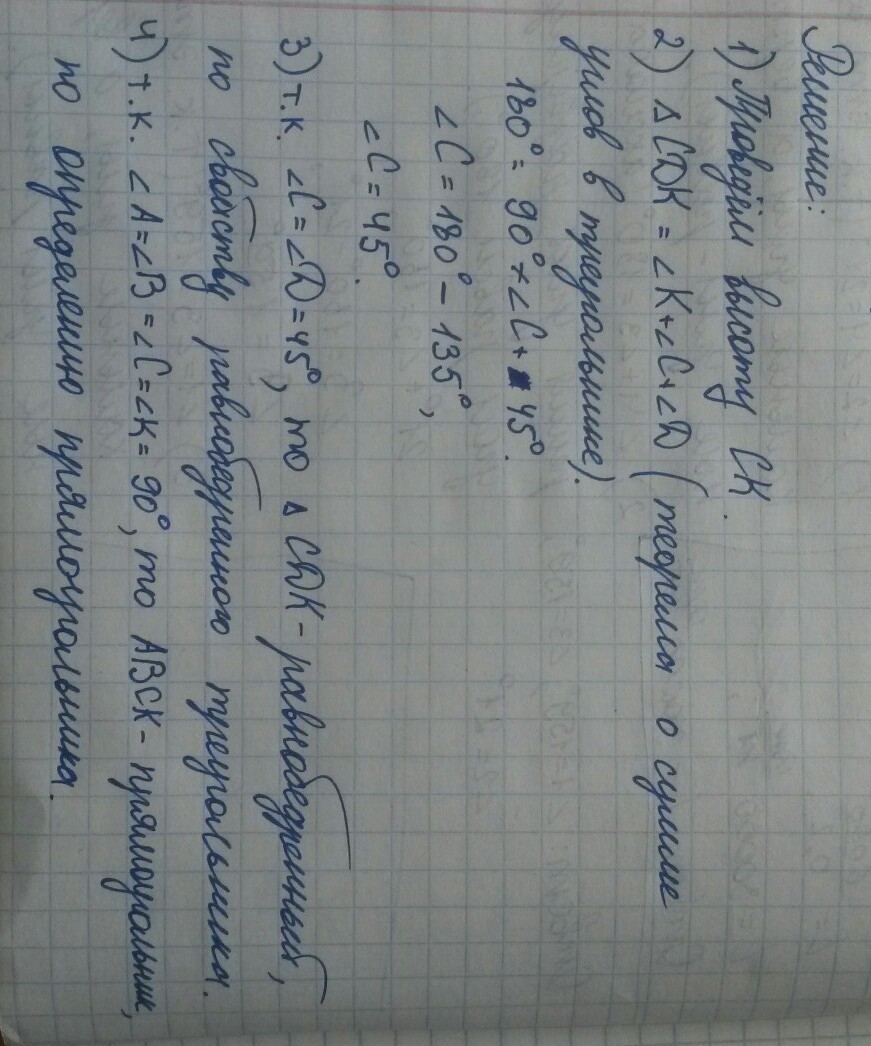 Решение:
1) Проведём высоту СК.
2) △CDK = ∠K+∠C+∠D (теорема о сумме
углов в треугольнике).
180° = 90°+∠C+ 45°.
∠C = 180° – 135°,
∠C = 45°.
3) т.к. ∠C=∠D=45°, то △CDK – равнобедренный,
по свойству равнобедренного треугольника.
4) т.к. ∠A=∠B=∠C=∠K= 90°, то ABCK – прямоугольник,
по определению прямоугольника.